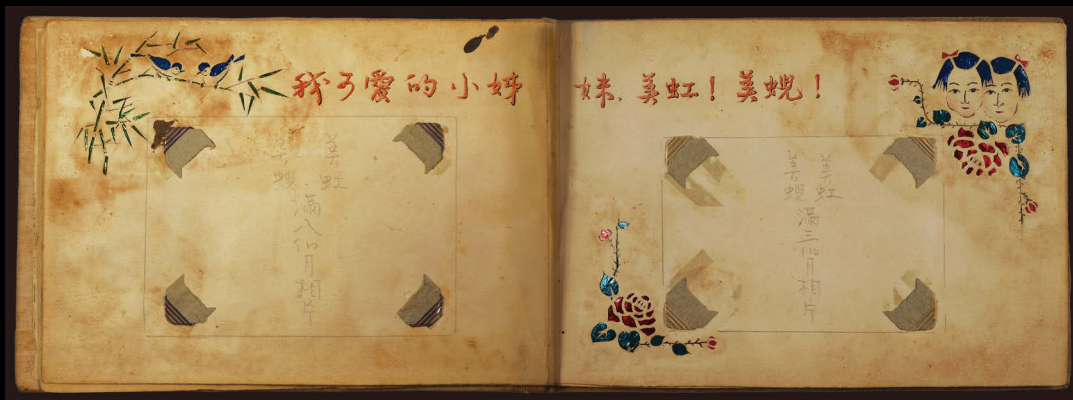 我可愛的小姊妹,美虹!美蜺!
美虹
美蜺
滿八個月相片
美虹
美蜺
滿三個月相片